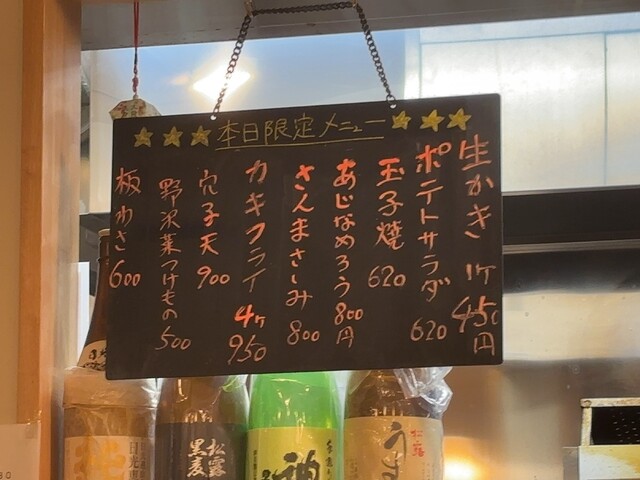 本日限定メニュー
生かき 1ケ 450円
ポテトサラダ 620
玉子焼 620
あじなめろう 800円
さんまさしみ 800
カキフライ 4ケ 950
穴子天 900
野沢菜つけもの 500
板わさ 600
松露
黒麦